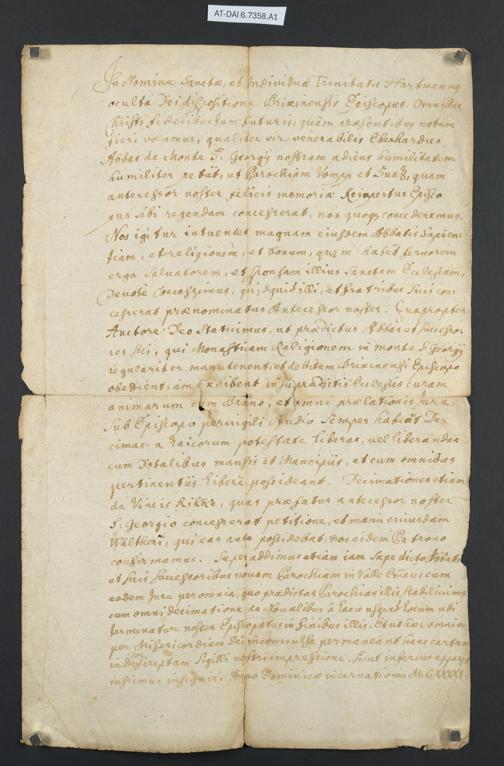 AT-DAI 6.7358.A1
In Nomine Sanctæ, et Individuæ Trinitatis Hartmannus
oculta Dei dispositione Brixinensis Episcopus. Omnibus
Christi fidelibus tam futuris, quàm præsentibus notum
fieri volumus, qualiter vir venerabilis Eberhardus
Abbas de Monte S. Georgÿ nostram adiens humilitatem
humiliter petÿt, ut Parochiam Vomp et quam
antecessor noster felicis memoriæ Reinpertus Episco-
pus sibi regendam concesserat, nos quoqȝ concederemus.
Nos igitur intuentes magnam eiusdem Abbatis Sapien-
tiam, et religionem, et bonum, quem habet fervorem
erga Salvatorem, et sponsam illius Sanctam Ecclesiam,
Devote concessimus, quidquid illi, et fratribus suis con-
cesserat prænominatus Antecessor noster. Quapropter
Auctore Deo Statuimus, ut prædictus Abbas et successo-
res sui, qui Monasticam Religionem in monte S. Georgÿ
regulariter manutenent, et debitam Brixinensi Episcopo
obedientiam exhibent in supradictis Ecclesiis curam
animarum cum Banno, et omni prælationis Jure
Sub Episcopo pervigili studio Semper habeat De-
cimas a Laicorum potestate liberas, vel liberandas
cum Dotalibus mansis et Mancipÿs, et cum omnibus
pertinentÿs libere possideant. Decimationes etiam
de Vineis Rikkr, quas præfatus antecessor noster
S. Georgio concesserat petitione, et manu cuiusdam
Waltheri, qui eas ante possidebat, nos eidem Patrono
confirmamus. Superaddimus etiam iam sæpe dicto Abbati
et suis successoribus novam Parochiam in Valle cum
eodem Jure per omnia, quo prædictas Parochias illis stabilivimus
cum omni decimatione de Novalibus a usqȝ ad locum ubi
terminatur noster Episcopatus in finibus illis. Et ut hæc omnia
per Misericordiam Dei inconvulsa permaneant hanc cartam
inde Scriptam Sigilli nostri impressione, Sicut inferius apparet
iussimus insigniri. Anno Dominicæ incarnationis